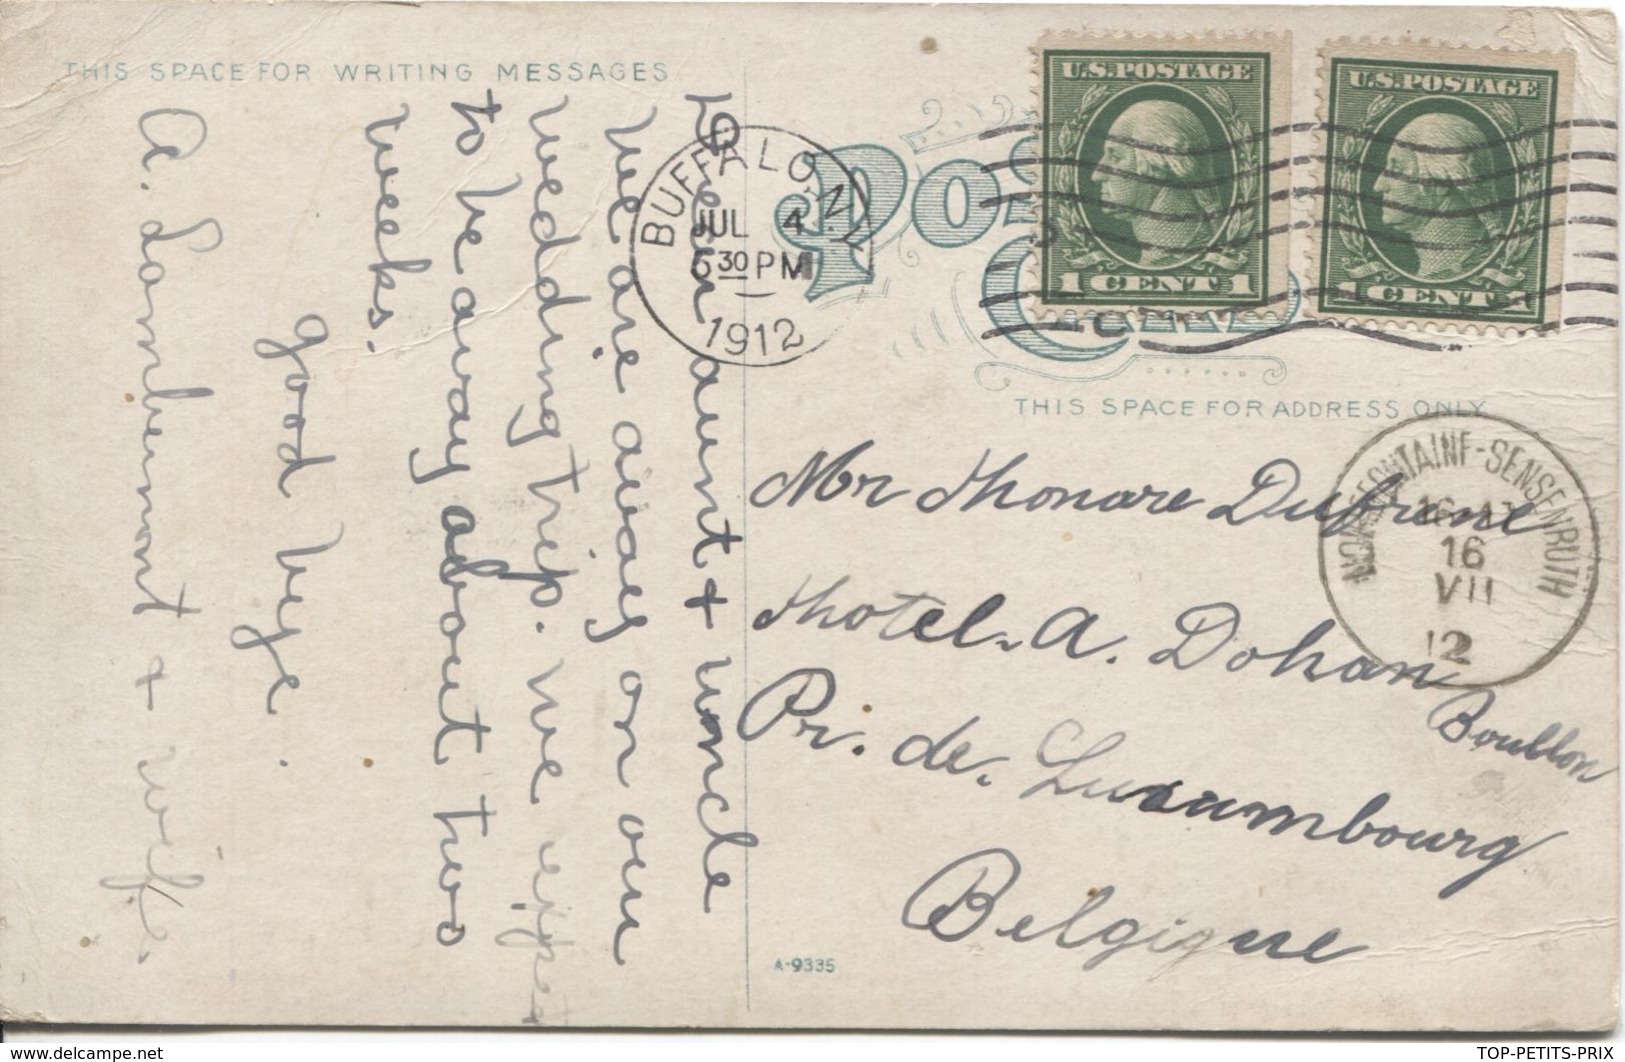 THIS SPACE FOR WRITING MESSAGES
Dear aunt + uncle
We are away on our
wedding trip. We expect
to be away about two
weeks.
good bye.
A. Lambermont + wife.
BUFFALO, N.Y.
JUL 4
6 30 PM
1912
POST CARD
U.S. POSTAGE
1 CENT 1
U.S. POSTAGE
1 CENT 1
THIS SPACE FOR ADDRESS ONLY
SENSENRUTH
16
VII
12
Mr Thonare Dufrene
Hotel. A. Dohan
Boullon
Pr. de. Luxumbourg
Belgique
A-9335
TOP-PETITS-PRIX
www.delcampe.net